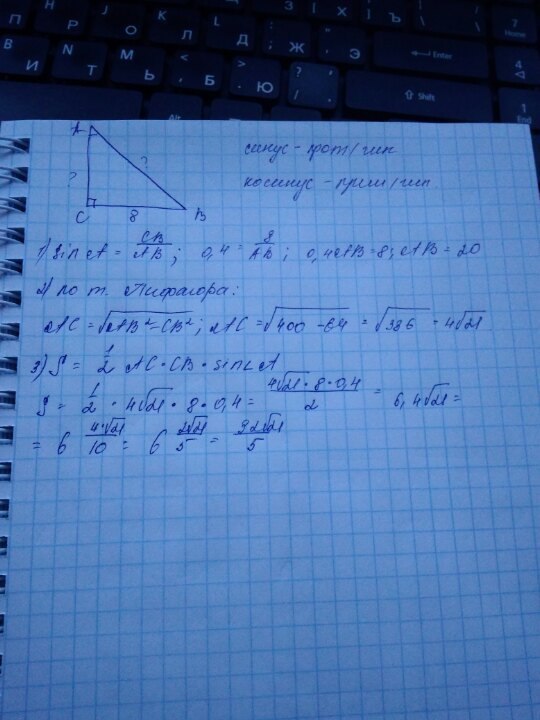 7 Home
Р Н
О J
Л K
Д L
Ж ;
Э
Enter
И
Т N
Ь M
Б <
Ю > .
? /
Shift
4
Alt
1 End
A
?
?
C 8 B
синус - прот/гип
косинус - прил/гип
1) sin A = CB/AB ; 0,4 = 8/AB ; 0,4AB = 8; AB = 20
2) по т. Пифагора:
AC = √AB² - CB² ; AC = √400 - 64 = √336 = 4√21
3) S = 1/2 AC · CB · sin∠A
S = 1/2 · 4√21 · 8 · 0,4 = 4√21 · 8 · 0,4/2 = 6,4√21 =
= 6 4√21/10 = 6 2√21/5 = 32√21/5